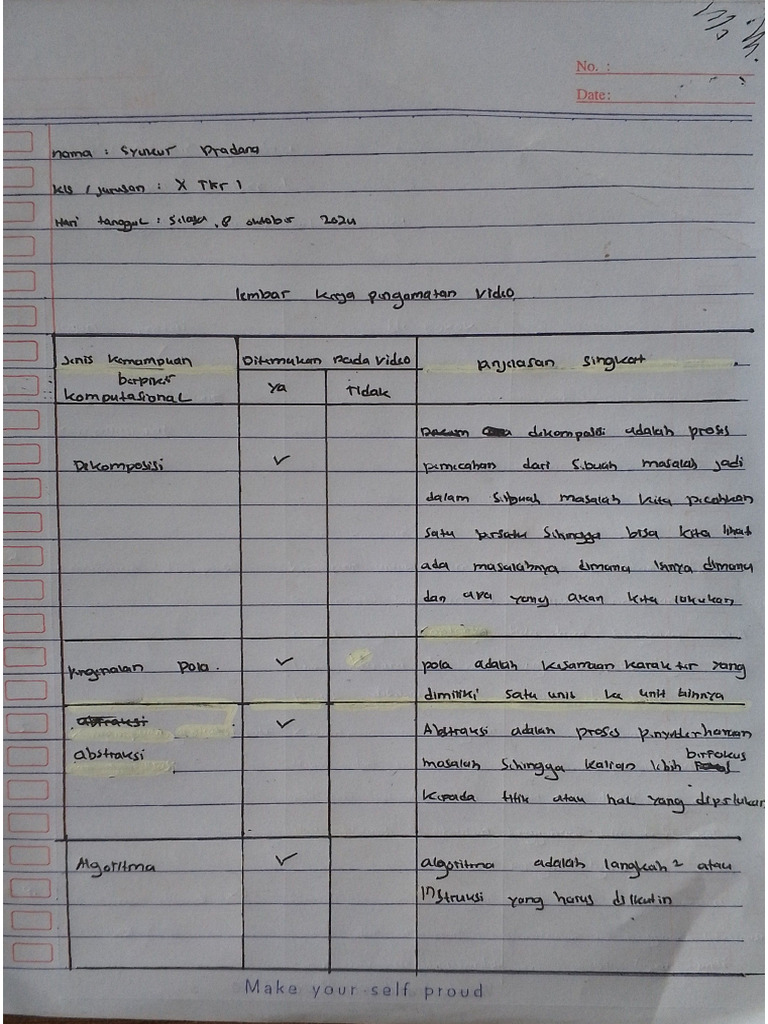 No. :
Date:
nama : Syukur Pradana
Kls / jurusan : X TKr 1
Hari tanggal : Selasa, 8 oktober 2024
lembar kerja pengamatan video
Jenis kemampuan berpikir komputasional
Ditemukan pada video
penjelasan singkat
ya
Tidak
Dekomposisi
✓
dekomposisi adalah proses
pemecahan dari sebuah masalah jadi
dalam sebuah masalah kita pecahkan
satu persatu sehingga bisa kita lihat
ada masalahnya dimana isinya dimana
dan apa yang akan kita lakukan
pengenalan pola.
✓
pola adalah kesamaan karakter yang
dimiliki satu unit ke unit lainnya
abstraksi
✓
Abstraksi adalah proses penyederhanaan
masalah sehingga kalian lebih berfokus
kepada titik atau hal yang diperlukan
Algoritma
✓
algoritma adalah langkah² atau
instruksi yang harus diikutin
Make your self proud